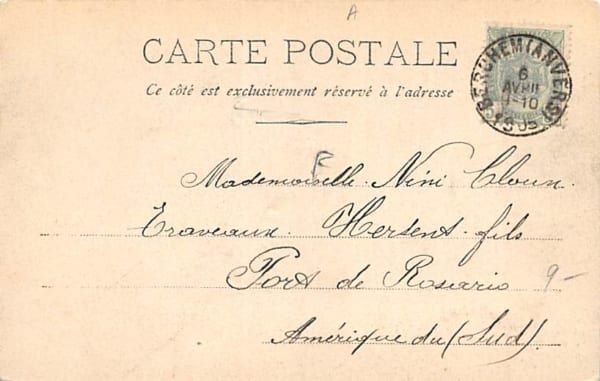 A
CARTE POSTALE
Ce côté est exclusivement réservé à l'adresse
BERCHEM (ANVERS)
6
AVRIL
1-10
1905
F
Mademoiselle. Nini Cloun.
Traveaux. Hersent. fils
Port de Rosario
9-
Amérique du (Sud).